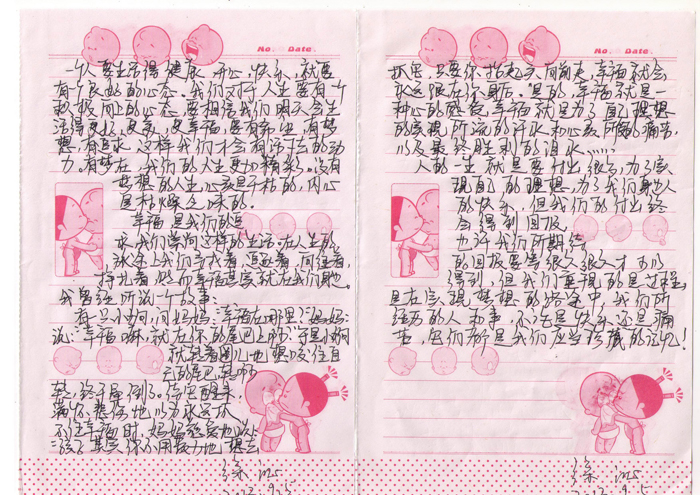 No. Date.
一个人要生活得健康、开心,快乐,就要
有个良好的心态。我们对待人生要有个
积极向上的心态。要相信我们明天会生
活得更好,更充,更幸福,要有希望,有梦
想,有追求。这样我们才会有活拉的动
力。有梦在,我们的人生更加精彩。没有
梦想的人生,应该是干枯的,内心
是枯燥乏味的。
幸福是我们的追
求,我们学向这样的生活。在人生的
旅途上我们寻找着,追逐着,向往着,
挣扎着,然而幸福其实就在我们身边。
我曾经听说一个故事:
有只小狗,问妈妈:"幸福在哪里?"妈妈
说:"幸福嘛,就在你的尾巴上啊。"于是小狗
就绕着圈儿地想咬住自
己的尾巴,
终于晕倒了。待它醒来,
悲伤地以为永远抓
不住幸福时,妈妈慈爱地说:"孩
孩子,其实你不用费力地想去
No. Date.
抓它,只要你抬起头向前走,幸福就会
永远跟在你身后。"是的,幸福就是一
种心的感觉,幸福就是为了自己理想
的实现所流的汗水和心灵所受的痛苦,
以及最终胜利的泪水……
人的一生就是要付出很多,为了实
现自己的理想,为了我们身边人
的快乐,但我们的付出终
会得到回报。
也许我们所期待
的回报要等很久很久才可以
得到,但我们重视的是过程。
是在实现梦想的旅途中,我们所
经历的人和事,不论是快乐还是痛
苦,它们都是我们应当珍藏的记忆!